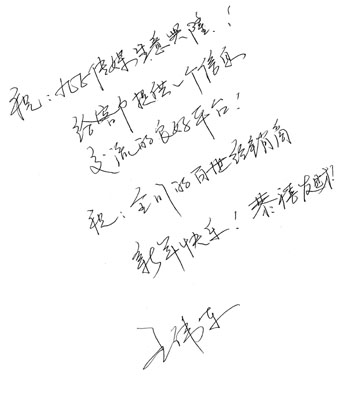 祝：九正传媒生意兴隆！
给客户提供一个信息
交流的良好平台！
祝：全川的同世经销商
新年快乐！恭禧发财！
王伟东